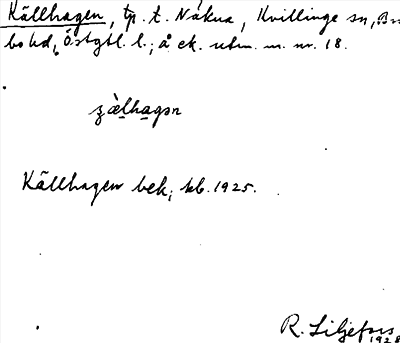 Källhagen, tp. t. Nákna, Kvillinge sn, Br
bo hd, Östgtl. l.; å ek. utm. m. nr. 18.
Källhagen bek; kb. 1925.
R. Liljefors
1928